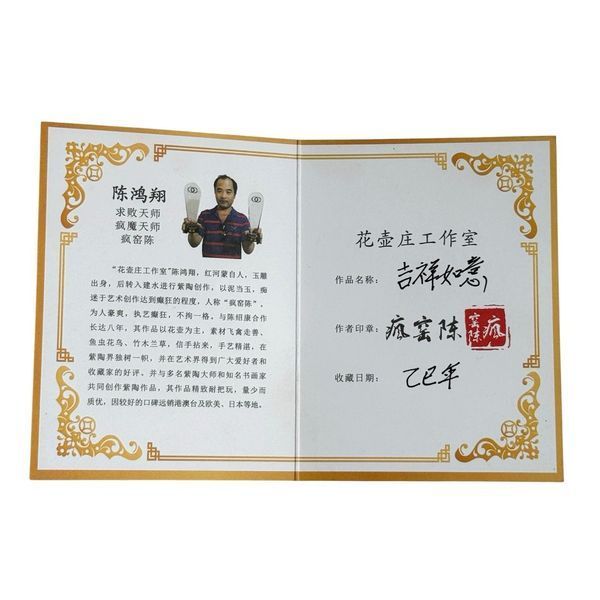 陈鸿翔
求败天师
疯魔天师
疯窑陈
“花壶庄工作室”陈鸿翔，红河蒙自人，玉雕
出身，后转入建水进行紫陶创作，以泥当玉，痴
迷于艺术创作达到癫狂的程度，人称“疯窑陈”，
为人豪爽，执艺癫狂，不拘一格，与陈绍康合作
长达八年，其作品以花壶为主，素材飞禽走兽、
鱼虫花鸟、竹木兰草，信手拈来，手艺精湛，在
紫陶界独树一帜，并在艺术界得到广大爱好者和
收藏家的好评。并与多名紫陶大师和知名书画家
共同创作紫陶作品，其作品精致耐把玩，量少而
质优，因较好的口碑远销港澳台及欧美、日本等地。
花壶庄工作室
作品名称：吉祥如意
作者印章：疯窑陈 疯窑陈
收藏日期：乙巳年